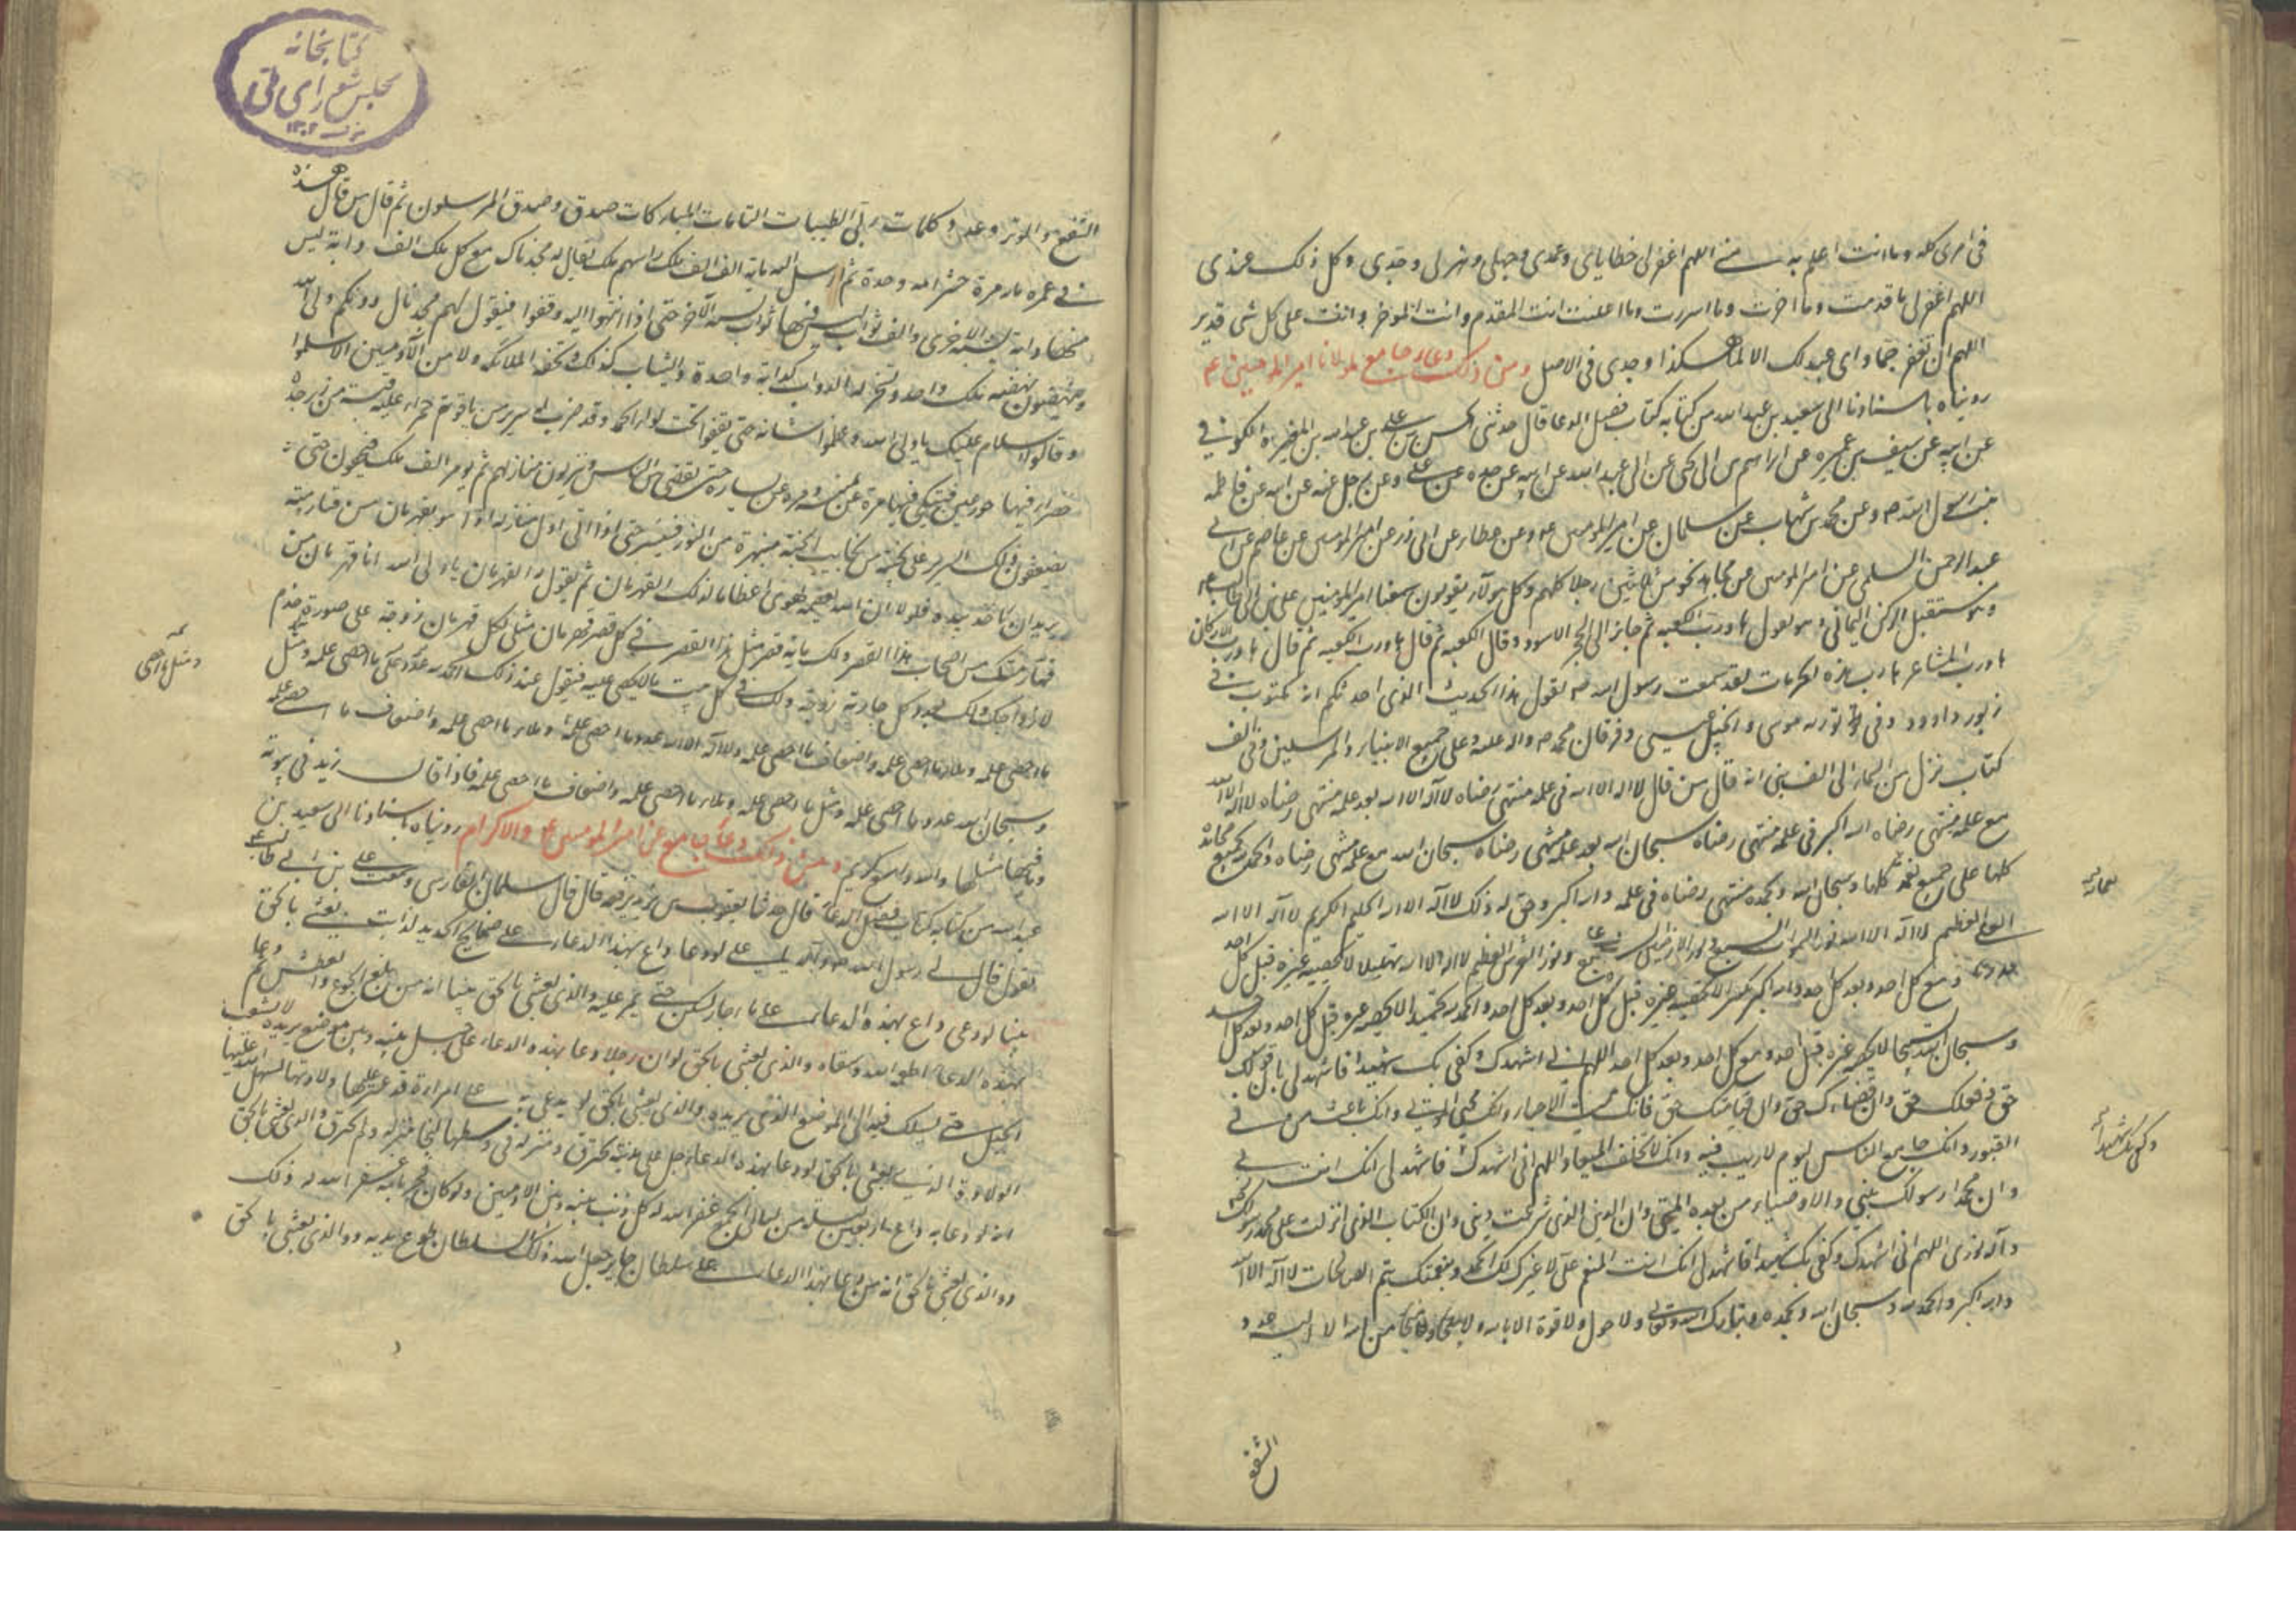 في امري كله وما انت اعلم به مني اللهم اغفر لي خطاياي وعمدي وجهلي وهزلي وجدي وكل ذلك عندي
اللهم اغفر لي ما قدمت وما اخرت وما اسررت وما اعلنت انت المقدم وانت المؤخر وانت على كل شي قدير
اللهم ان تغفر جما واي عبد لك الا لما هكذا وجدي في الاصل ومن ذلك دعاء جامع لمولانا امير المؤمنين عم
رويناه باسنادنا الى سعيد بن عبد الله من كتابه كتاب فضل الدعا قال حدثني الحسن بن علي بن عبد الله بن المغيرة الكوفي
عن ابيه عن سيف بن عميره عن ابي عبد الله عن ابيه عن جده عن علي وعن رجل عن ابيه عن فاطمه
بنت رسول الله ص وعن محمد بن شهاب عن سلمان عن امير المومنين وعن عطار عن ابي ذر عن امير المومنين عن عاصم عن ابي
عبد الرحمن السلمي عن امير المومنين عن مجاهد نحو من ثلاثين رجلا كلهم وكل هولاء يقولون سمعنا امير المومنين علي بن ابي طالب
وهو مستقبل الركن اليماني وهو يقول ها ورب الكعبه ثم جاز الى الحجر الاسود وقال الكعبه ثم قال ها ورب الكعبه ثم قال ها ورب الاركان
ها ورب المشاعر ها رب هذه الحرمات لقد سمعت رسول الله ص يقول هذا الحديث الذي احدثكم انه مكتوب في
زبور داوود وفي توريه موسى وانجيل عيسى وفرقان محمد ص واله عليه وعلى جميع الانبياء والمرسلين وفي الف
كتاب نزل من السماء الى الف نبي انه قال من قال لا اله الا الله في علمه منتهى رضاه لا اله الا الله بعد علمه منتهى رضاه لا اله الا الله
مع علمه منتهى رضاه الله اكبر في علمه منتهى رضاه سبحان الله بعد علمه منتهى رضاه سبحان الله مع علمه منتهى رضاه والحمد لله بجميع محامده
كلها على جميع نعمه كلها وسبحان الله وبحمده منتهى رضاه في علمه والله اكبر وحق له ذلك لا اله الا الله الحليم الكريم لا اله الا الله
العلي العظيم لا اله الا الله نور السموات السبع ونور الارضين السبع ونور العرش العظيم لا اله الا الله تهليلا لا يحصيه غيره قبل كل احد
ومع كل احد وبعد كل احد والله اكبر تكبيرا لا يحصيه غيره قبل كل احد وبعد كل احد والحمد لله تحميدا لا يحصيه غيره قبل كل احد وبعد كل احد
وسبحان الله تسبيحا لا يحصيه غيره قبل احد ومع كل احد وبعد كل احد اللهم اني اشهدك وكفى بك شهيدا فاشهد لي بان قولك
حق وفعلك حق وان قضاءك حق وان قيامتك حق فانك مميت الاحياء وانك محيي الموتى وانك باعث من في
القبور وانك جامع الناس ليوم لا ريب فيه وانك لا تخلف الميعاد اللهم اني اشهدك فاشهد لي انك انت ربي
وان محمدا رسولك نبيي والاوصياء من بعده ائمتي وان الدين الذي شرعت ديني وان الكتاب الذي انزلت على محمد رسولك
وآله نوري اللهم اني اشهدك وكفى بك شهيدا فاشهد لي انك انت المنعم علي لا غيرك لك الحمد وبنعمتك يتم الصالحات لا اله الا الله
والله اكبر والحمد لله وسبحان الله وبحمده وتبارك الله وتعالى ولا حول ولا قوة الا بالله ولا ملجا ولا منجا من الله الا اليه عدد
وكفى بك شهيدا
الشفع
كتابخانه
مجلس شورای ملی
الشفع والوتر وعدد كلمات ربي الطيبات التامات المباركات صدق وصدق المرسلون ثم قال من قال هذه
في عمره مرة حشر امة وحده ثم ارسل الله ماية الف الف ملك راسهم ملك يقال له مجدباك مع كل ملك الف دابة ليس
منها دابة تشبه الاخرى والف ثواب ليس فيها ثواب يشبه الاخر حتى اذا انتهوا اليه وقفوا فيقول لهم مجدباك دونكم ولي الله
فينهضون نهضة ملك واحد وتسخر له الدواب كدابة واحدة والثياب كذلك وتحفه الملائكة ولا من الآدميين الا سلموا
وقالوا السلام عليك يا ولي الله وعظموا شانه حتى يقفوا تحت لواء الحمد وقد ضرب له سرير من ياقوتة حمراء عليه قبة من زبرجدة
خضراء فيها حور عين فيتكي فيها مرة عن يمينه ومرة عن يساره حتى يقضى بين الناس وينزلون منازلهم ثم يومر الف ملك
يضعون ذلك السرير على نجيبة من نجايب الجنة مشهرة من النور فيسير حتى اذا اتى اول منازله اذا هو بقهرمان من قهارمته
يريد ان ياخذ بيده فلولا ان الله يعصمه لهوى اعظاما لذلك القهرمان ثم يقول له القهرمان يا ولي الله انا قهرمان من
قهارمتك من اصحاب هذا القصر ولك ماية قصر مثل هذا القصر في كل قصر قهرمان مثلي لكل قهرمان زوجة على صورة خدم
لازواجك ولك بعدد كل جارية زوجة ولك في كل بيت ما لا يحصى عليه فيقول عند ذلك الحمد لله عدد ما احصى علمه ومثل
ما احصى علمه وملاء ما احصى علمه واضعاف ما احصى علمه ولا اله الا الله عدد ما احصى علمه وملاء ما احصى علمه واضعاف ما احصى علمه
وسبحان الله عدد ما احصى علمه ومثل ما احصى علمه وملاء ما احصى علمه واضعاف ما احصى علمه فاذا قال زيد في بيوته
وما فيها مثلها والله واسع كريم ومن ذلك دعاء جامع عن امير المومنين والاكرام رويناه باسنادنا الى سعيد بن
عبد الله من كتابه كتاب فضل الدعاء قال حدثنا يعقوب بن يزيد يرفعه قال قال سلمان الفارسي سمعت علي بن ابي طالب
يقول قال لي رسول الله ص وآله يا علي لو دعا داع بهذا الدعاء على صفايح الحديد لذابت والذي بعثني بالحق
نبيا لو دعى داع بهذه الدعاء على ماء جار لسكن حتى يمر عليه والذي بعثني بالحق نبيا انه من بلغ به الجوع والعطش ثم دعا
بهذه الدعاء اطعمه الله وسقاه والذي بعثني بالحق لو ان رجلا دعا بهذه الدعاء على جبل بينه وبين موضع يريده لانشعب
الجبل حتى يسلك فيه الى الموضع الذي يريده والذي بعثني بالحق لو يدعى به على امراة قد عسر عليها ولادتها لسهل الله عليها
الولادة والذي بعثني بالحق لو دعا بهذه الدعاء رجل على مدينة تحترق ومنزله في وسطها لنجا منزله ولم يحترق والذي بعثني بالحق
انه لو دعا به داع اربعين ليلة من ليالي الجمع غفر الله له كل ذنب بينه وبين الآدميين ولو كان فجر بامه غفر الله له ذلك
والذي بعثني بالحق انه من دعا بهذا الدعاء على سلطان جاير جعل الله ذلك السلطان طوع يديه والذي بعثني بالحق
ومثل ما احصى